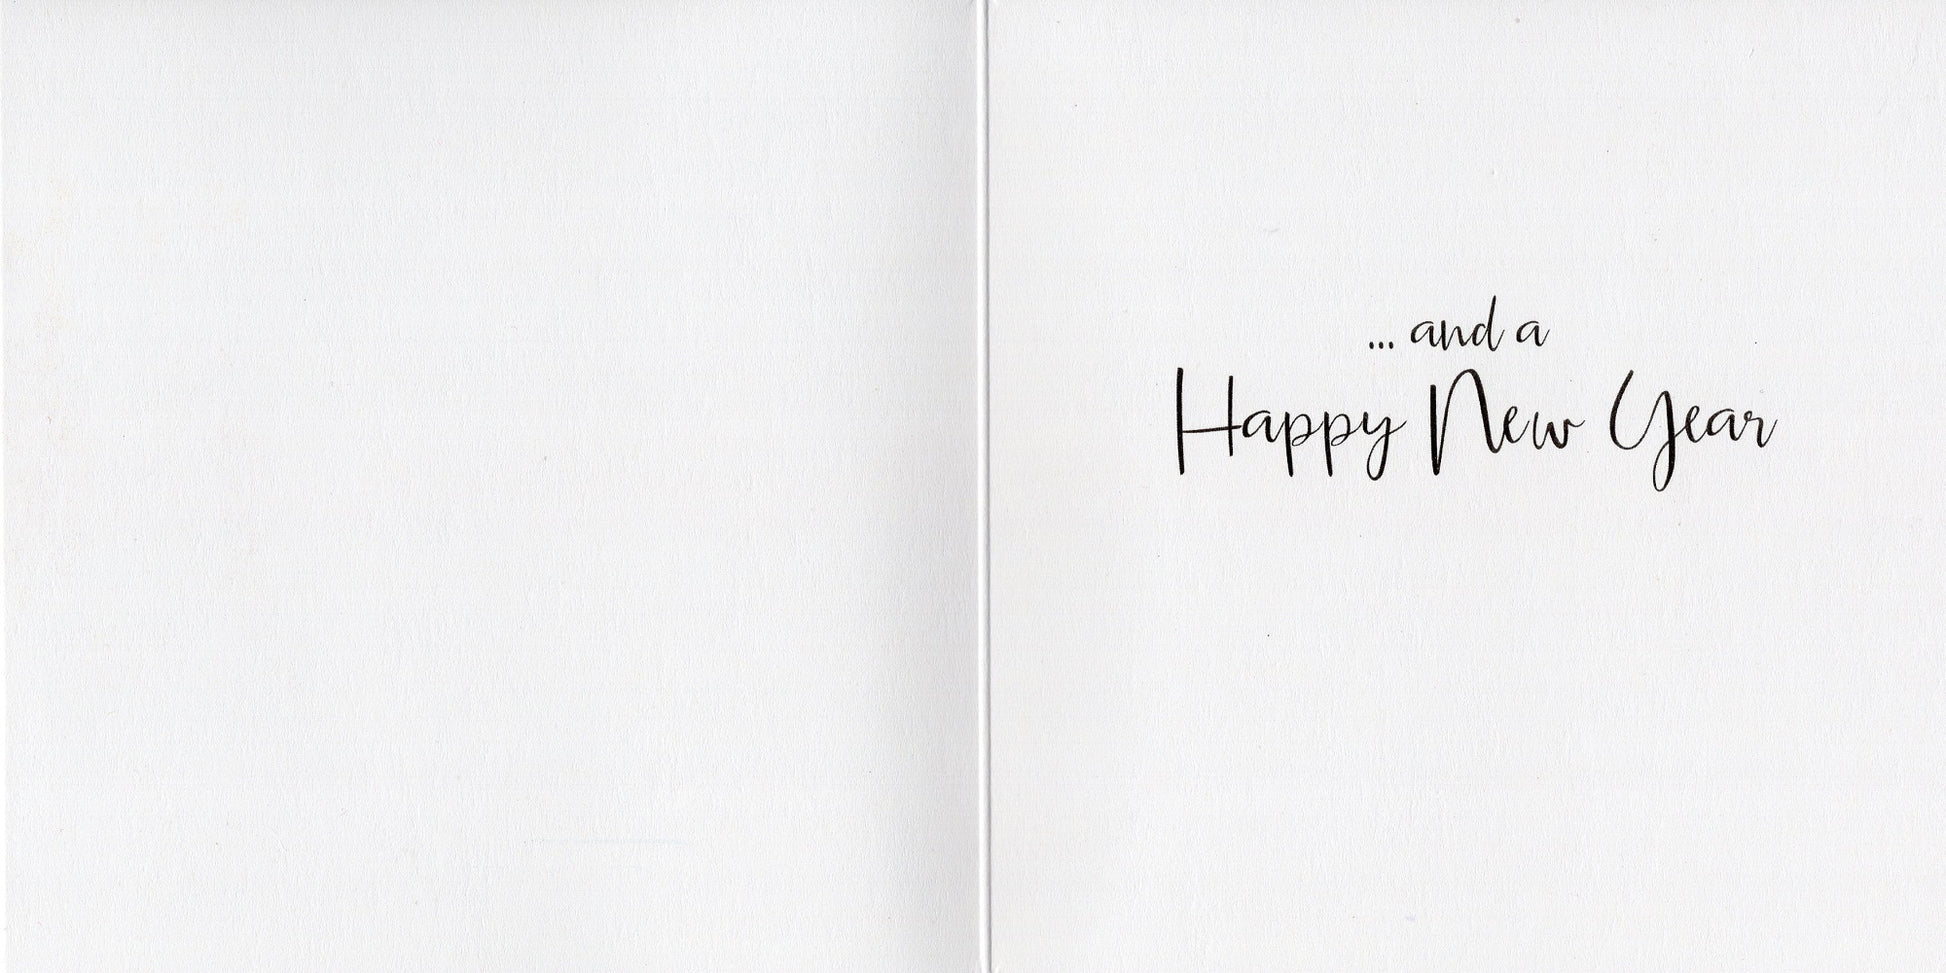 ... and a
Happy New Year